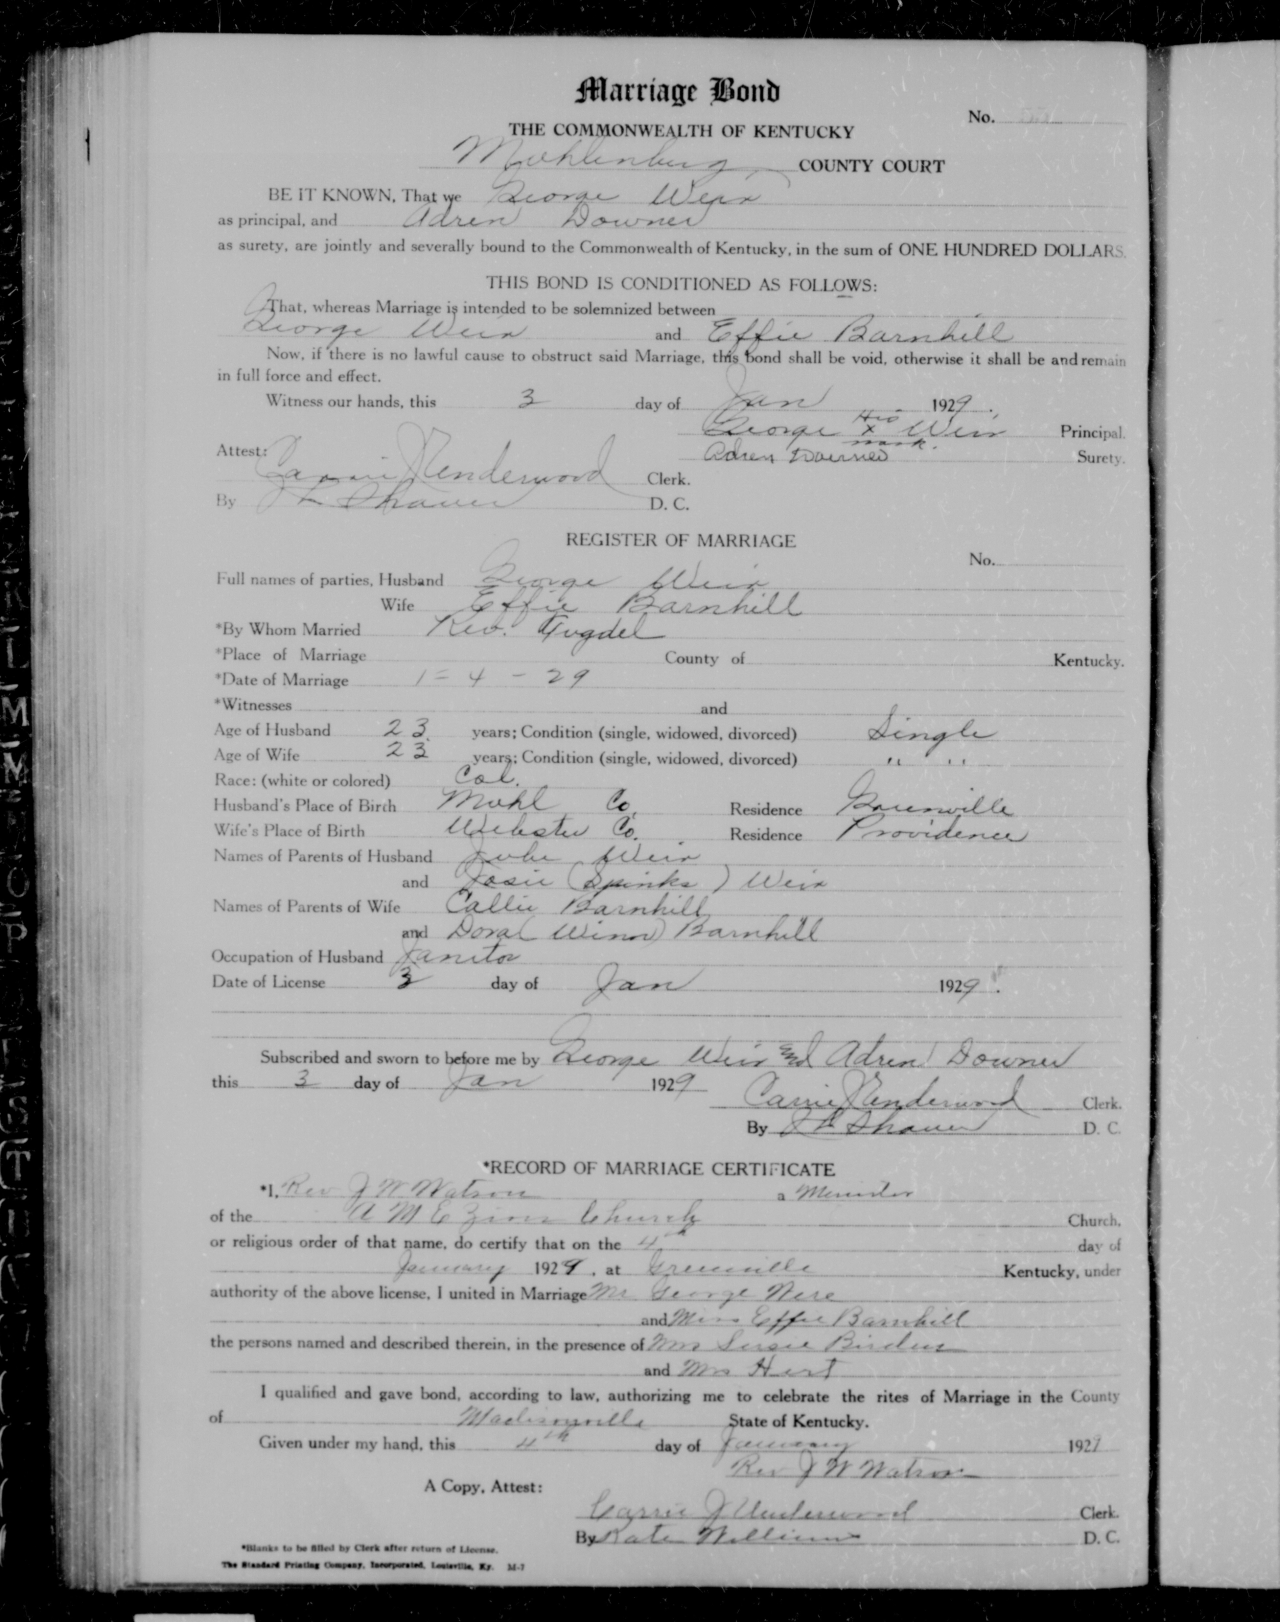 Marriage Bond
No.
THE COMMONWEALTH OF KENTUCKY
Muhlenburg COUNTY COURT
BE IT KNOWN, That we George Weir
as principal, and Adren Downer
as surety, are jointly and severally bound to the Commonwealth of Kentucky, in the sum of ONE HUNDRED DOLLARS.
THIS BOND IS CONDITIONED AS FOLLOWS:
That, whereas Marriage is intended to be solemnized between
George Weir and Effie Barnhill
Now, if there is no lawful cause to obstruct said Marriage, this bond shall be void, otherwise it shall be and remain
in full force and effect.
Witness our hands, this 3 day of Jan 1929.
George His x mark. Weir Principal.
Attest: Adren Downer Surety.
Carrie J Underwood Clerk.
By J L Shaver D. C.
REGISTER OF MARRIAGE
No.
Full names of parties, Husband George Weir
Wife Effie Barnhill
*By Whom Married Rev.
*Place of Marriage County of Kentucky.
*Date of Marriage 1 = 4 - 29
*Witnesses and
Age of Husband 23 years; Condition (single, widowed, divorced) Single
Age of Wife 23 years; Condition (single, widowed, divorced) " "
Race: (white or colored) Col.
Husband's Place of Birth Muhl Co. Residence Greenville
Wife's Place of Birth Webster Co. Residence Providence
Names of Parents of Husband Weir
and Josie (Spinks) Weir
Names of Parents of Wife Callie Barnhill
and Dora (Winn) Barnhill
Occupation of Husband Janitor
Date of License 3 day of Jan 1929.
Subscribed and sworn to before me by George Weir and Adren Downer
this 3 day of Jan 1929
Carrie J Underwood Clerk.
By J L Shaver D. C.
*RECORD OF MARRIAGE CERTIFICATE
*I, Rev J W Watson a Minister
of the A M E Zion Church Church,
or religious order of that name, do certify that on the 4th day of
January 1929, at Greenville Kentucky, under
authority of the above license, I united in Marriage Mr George Were
and Miss Effie Barnhill
the persons named and described therein, in the presence of Mrs Susie
and Mrs Hart
I qualified and gave bond, according to law, authorizing me to celebrate the rites of Marriage in the County
of Madisonville State of Kentucky.
Given under my hand, this 4th day of January 1929
Rev J W Watson
A Copy, Attest:
Carrie J Underwood Clerk.
By Kate Williams D. C.
*Blanks to be filled by Clerk after return of License.
The Standard Printing Company, Incorporated, Louisville, Ky. M-7